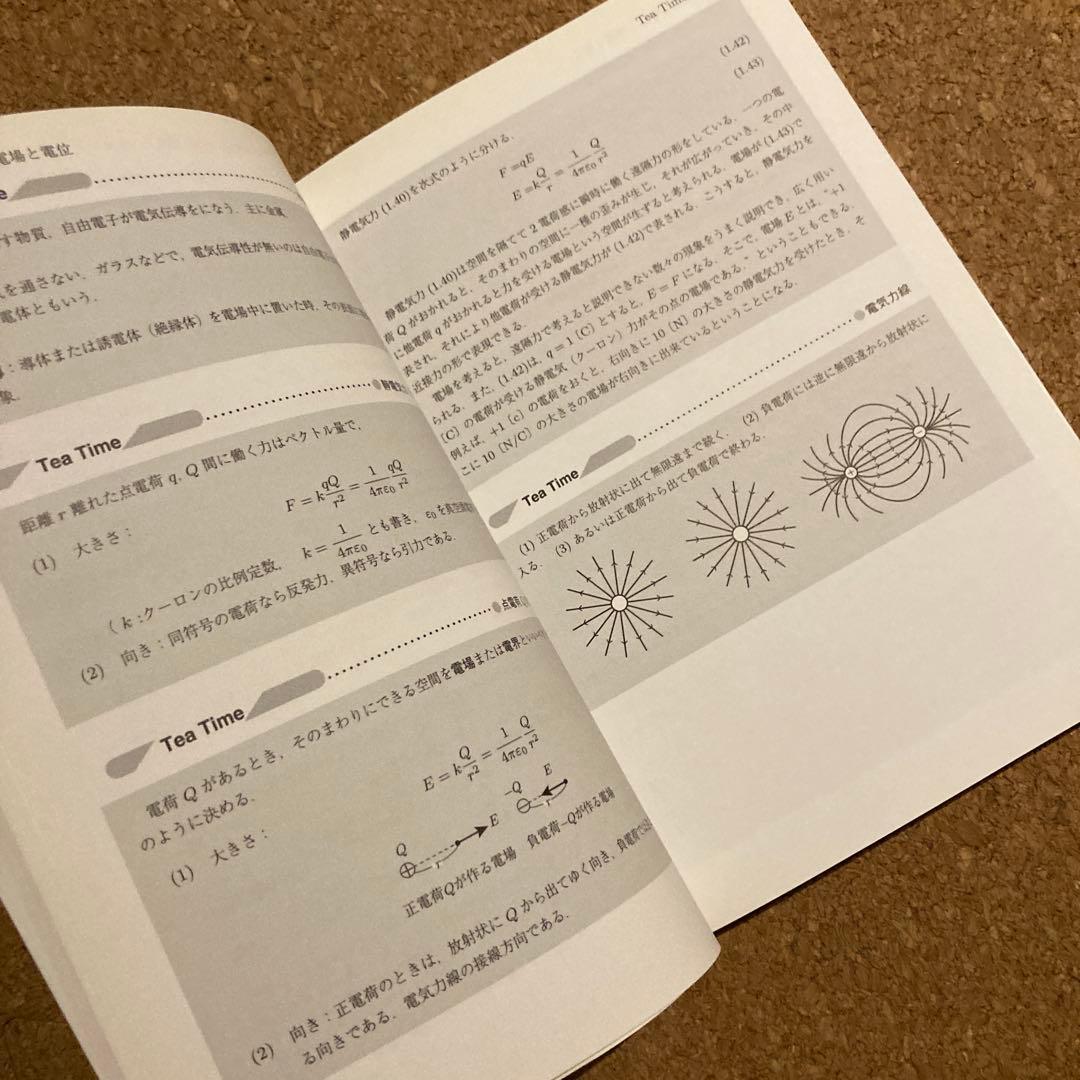 電場と電位
す物質．自由電子が電気伝導をになう．主に金属．
を通さない．ガラスなどで，電気伝導性が無いのは自由電
電体ともいう．
：導体または誘電体（絶縁体）を電場中に置いた時，その
象．
Tea Time
距離 r 離れた点電荷 q, Q 間に働く力はベクトル量で，
(1) 大きさ：
F = k qQ/r² = 1/4πε₀ qQ/r²
（k：クーロンの比例定数， k = 1/4πε₀ とも書き，ε₀ を真空
(2) 向き：同符号の電荷なら反発力，異符号なら引力である．
点電荷
Tea Time
電荷 Q があるとき，そのまわりにできる空間を電場または電界と
のように決める．
(1) 大きさ：
E = k Q/r² = 1/4πε₀ Q/r²
Q
r
E
-Q
r
E
正電荷Qが作る電場 負電荷-Qが作る電場
(2) 向き：正電荷のときは，放射状に Q から出てゆく向き，負電荷では
る向きである．電気力線の接線方向である．
Tea Time
静電気力 (1.40)を次式のように分ける．
F =qE (1.42)
E =k Q/r = 1/4πε₀ Q/r² (1.43)
静電気力 (1.40)は空間を隔てて 2 電荷感に瞬時に働く遠隔力の形をしている．一つの電
荷 Q がおかれると，そのまわりの空間に一種の歪みが生じ，それが広がっていき，その中
に他電荷 q がおかれると力を受ける電場という空間が生ずると考えられる．電場が(1.43)で
表され，それにより他電荷が受ける静電気力が (1.42)で表される．こうすると，静電気力を
近接力の形で表現できる．
電場を考えると，遠隔力で考えると説明できない数々の現象をうまく説明でき，広く用い
られる．また，(1.42)は，q = 1 [C] とすると，E = F になる．そこで，電場 E とは，"+1
[C] の電荷が受ける静電気（クーロン）力がその点の電場である．" ということもできる．
例えば，+1 [c] の電荷をおくと，右向きに 10 [N] の大きさの静電気力を受けたとき，そ
こに 10 [N/C] の大きさの電場が右向きに出来ているということになる．
電気力線
Tea Time
(1) 正電荷から放射状に出て無限遠まで続く． (2) 負電荷には逆に無限遠から放射状に
入る． (3) あるいは正電荷から出て負電荷で終わる．